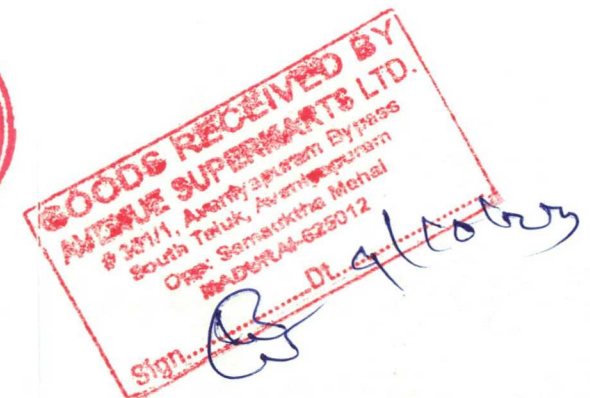 GOODS RECEIVED BY
AVENUE SUPERMARTS LTD.
# 391/1, Avaniyapuram Bypass
South Taluk, Avaniyapuram
Opp: Samauktha Mahal
MADURAI-625012
Sign..............Dt....................